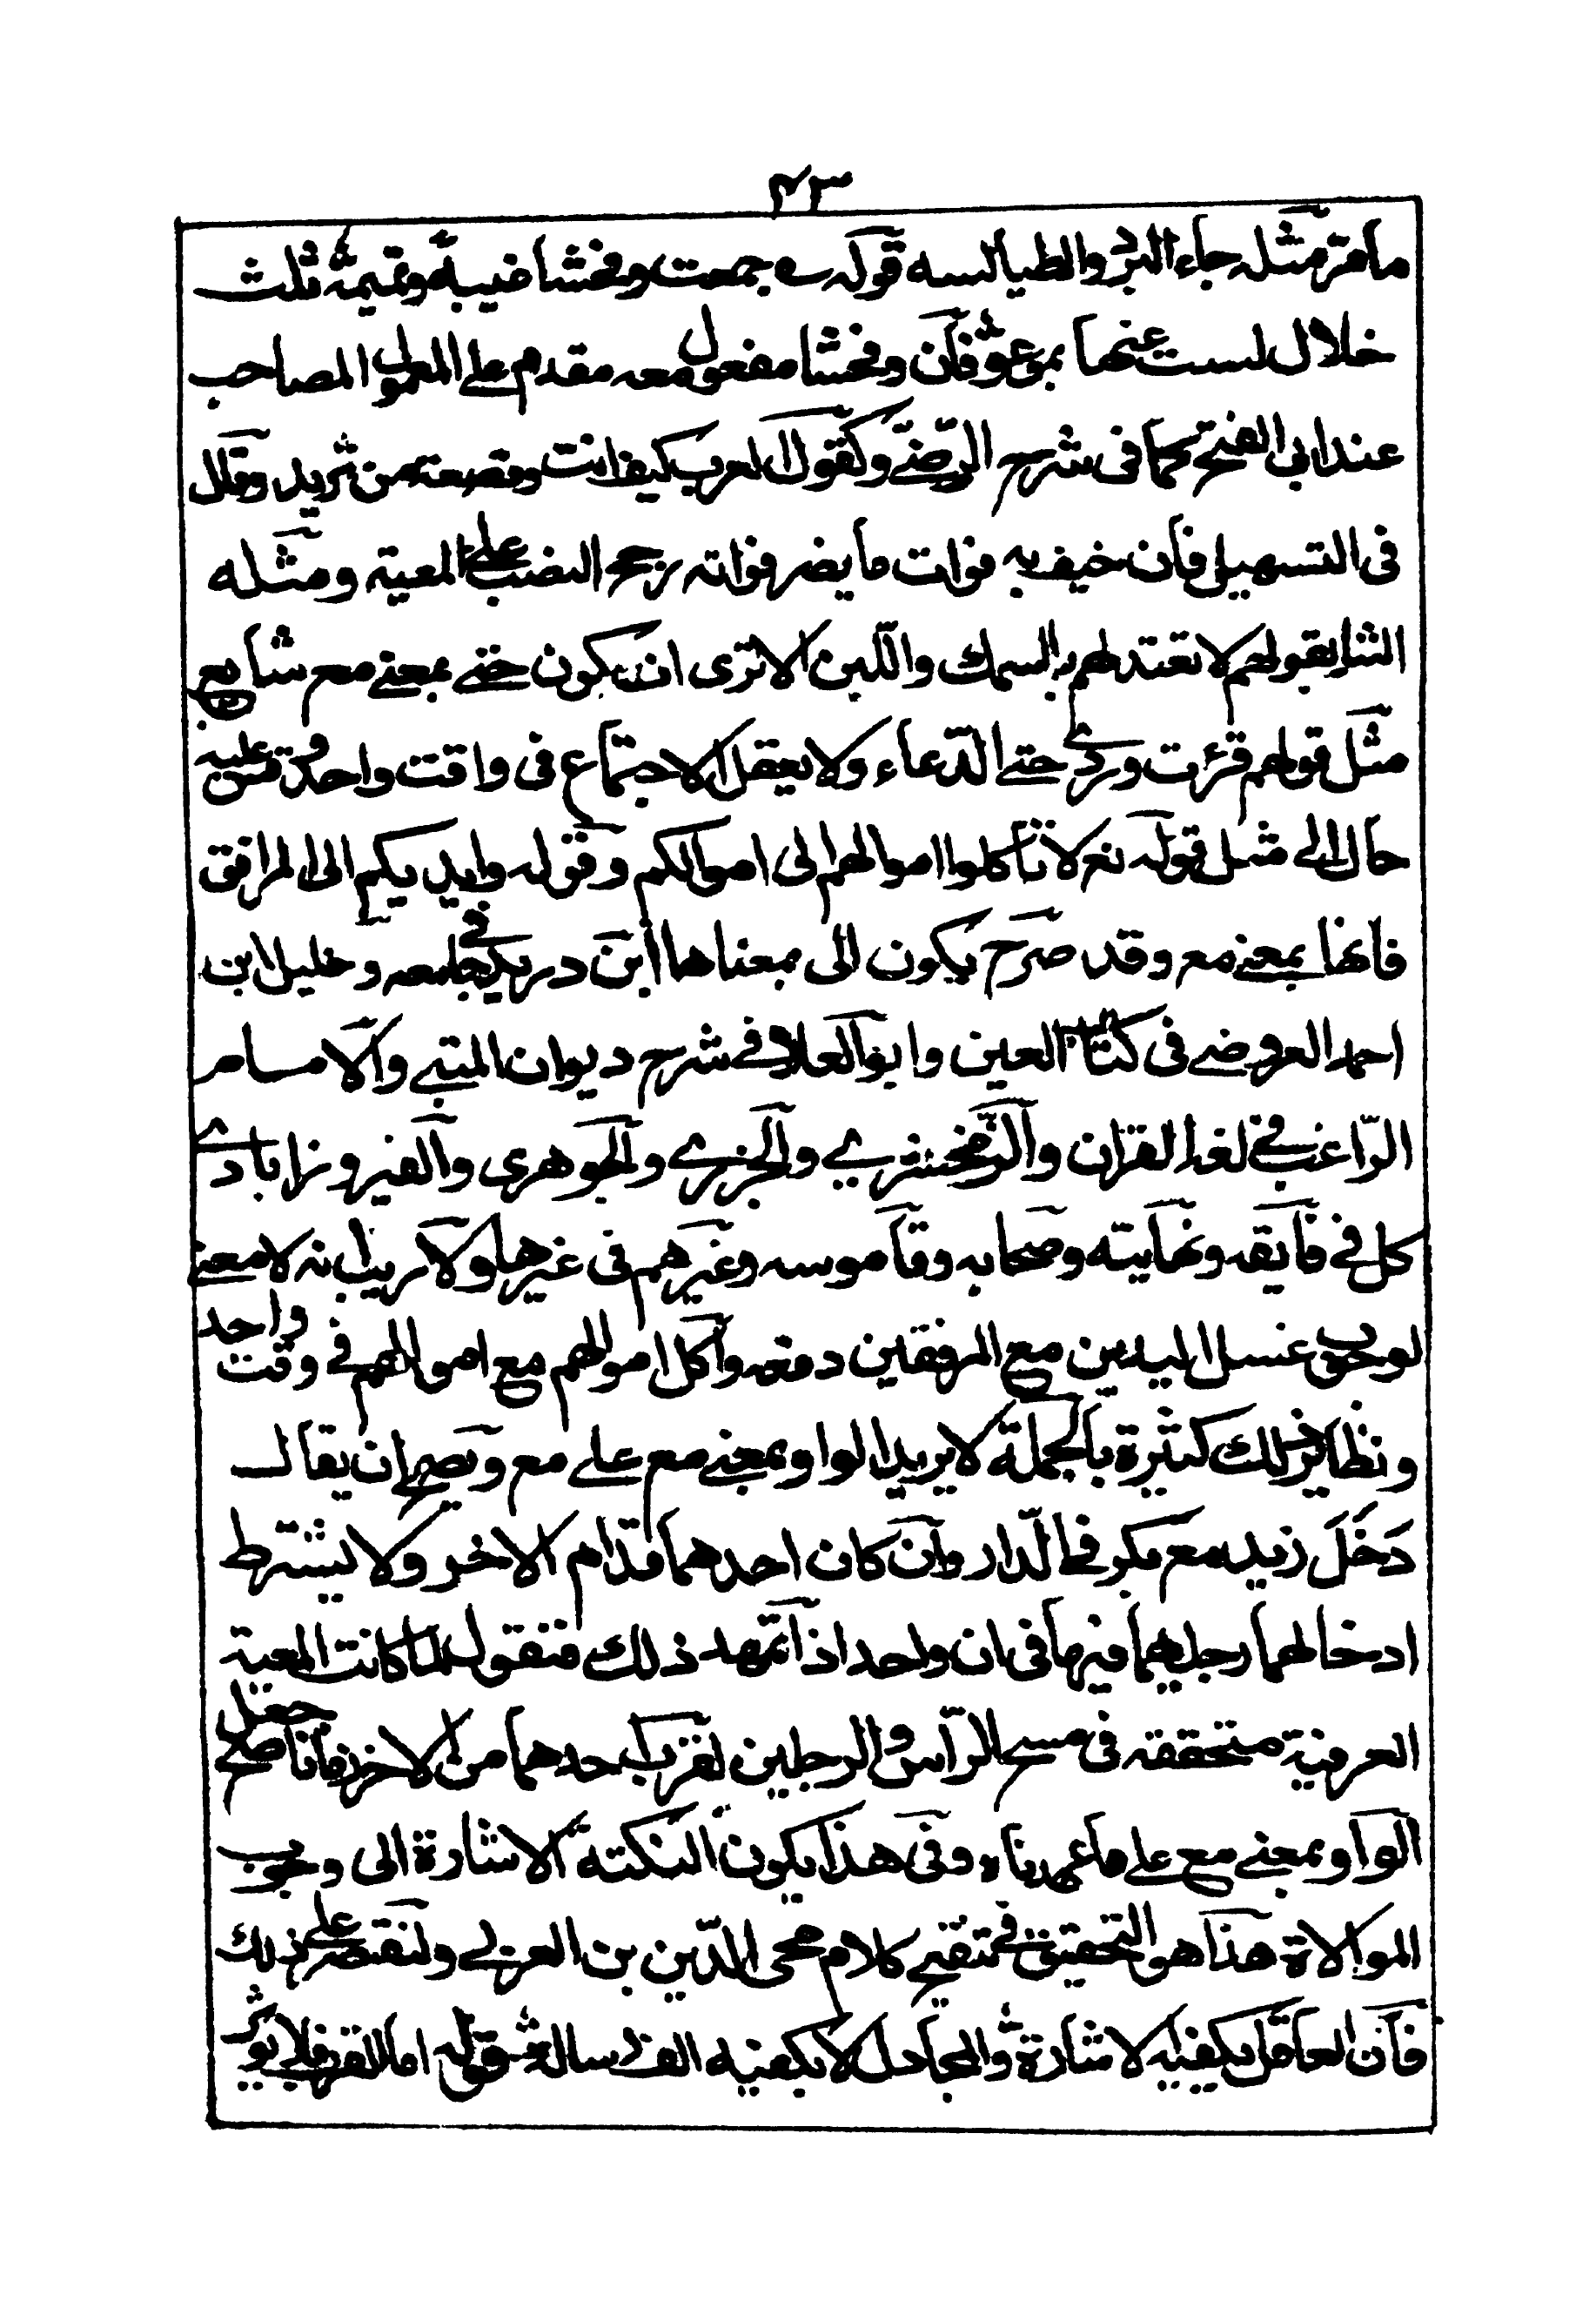 ٢٣
مامر مثله جاء البرد والطيالسه قوله جمعت وفحشا غيبة ونميمة ثلث
خلال لست عنها بمرعو فان وفحشا مفعول معه مقدم على المعمول المصاحب
عند ابى الفتح كما فى شرح الرّضى وكقول العرب كيف انت وقصعة من ثريد وقال
فى التسهيل فان خيف به فوات ما يضر فواته رجح النصب على المعية ومثله
الشا بقولهم لا تغتد بالسمك واللّبن الا ترى ان يكون حتى بمعنى مع شايع
مثل قولهم قرئت وردى حتى الدّعاء ولا يعقل الاجتماع فى واقت واحد وقس عليه
حال الى مثل قوله تع لا تأكلوا اموالهم الى اموالكم وقوله وايديكم الى المرافق
فانها بمعنى مع وقد صرح بكون الى بمعناها ابن دريد فى جامعه وخليل ابن
احمد العروضى فى كتاب العين وابو العلا فى شرح ديوان المتنبى والامام
الرّاغب فى لغة القران والزّمخشرى والجزرى والجوهرى والفيروزابادى
كل فى فايقه ونهايته وصحابه وقاموسه وغيرهم فى غيرها ولا ريب انه لا معنى
لوجوب غسل اليدين مع المرفقين دفعه واكل اموالهم مع اموالهم فى وقت واحد
ونظاير ذلك كثيرة بالجملة لا يريد الواو بمعنى مع على مع ويصح ان يقال
دَخَلَ زيد مع بكر فى الدّار وان كان احدهما قدام الاخر ولا يشترط
ادخالهما رجليهما فيها فى ان واحد اذا تمهد ذلك فنقول لما كانت المعية
العرفية متحققه فى مسح الرّاس والرجلين لقرب احدهما من الاخر فانا صلح جعل
الواو بمعنى مع على ما عهدناه وفى هذا يكون النكتة الاشارة الى وجوب
الموالاة هذا هو التحقيق فى تنقيح كلام محى الدّين بن العربى ولنقتصر على ذلك
فان العاقل يكفيه الاشارة والجاهل لا يكفيه الف رسالة قوله اما الفر فلا يو